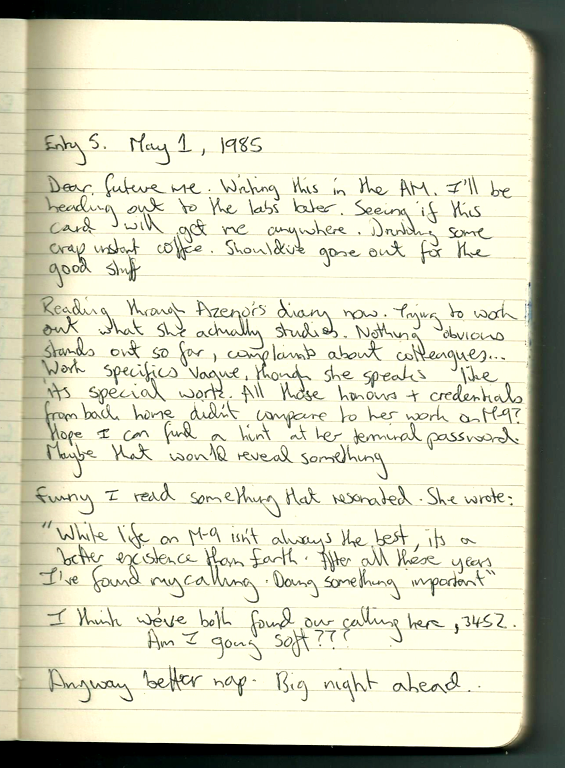 Entry 5. May 1, 1985
Dear future me. Writing this in the AM. I'll be
heading out to the labs later. Seeing if this
card will get me anywhere. Drinking some
crap instant coffee. Should've gone out for the
good stuff
Reading through Azenor's diary now. Trying to work
out what she actually studies. Nothing obvious
stands out so far, complaints about colleagues...
Work specifics vague, though she speaks like
its special work. All those honours + credentials
from back home didn't compare to her work on M-9?
Hope I can find a hint at her terminal password.
Maybe that would reveal something
Funny I read something that resonated. She wrote:
"While life on M-9 isn't always the best, its a
better existence than Earth. After all these years
I've found my calling. Doing something important"
I think we've both found our calling here, 3452.
Am I going soft???
Anyway better nap. Big night ahead..